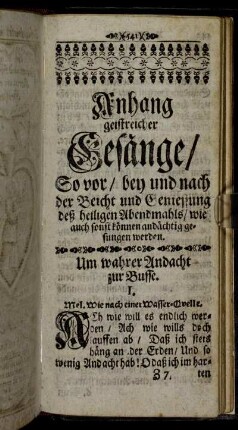 541
Anhang
geistreicher
Gesänge/
So vor/ bey und nach
der Beicht und Geniesung
deß heiligen Abendmahls/ wie
auch sonst können andächtig ge-
sungen werden.
Um wahrer Andacht
zur Busse.
I.
Mel. Wie nach einer Wasser-Quelle.
ACh wie will es endlich wer-
den/ Ach wie wills doch
lauffen ab/ Daß ich stets
häng an der Erden/ Und so
wenig Andacht hab! O daß ich im har-
Z 7. ten